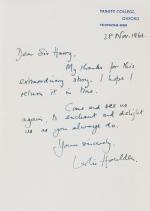 TRINITY COLLEGE,
OXFORD.
28 Nov. 1961.
Dear Sir Harry,
My thanks for this
extraordinary story. I hope I
return it in time.
Come and see us
again, to enchant and delight
us as you always do.
Yours sincerely,
Leslie Houlden.